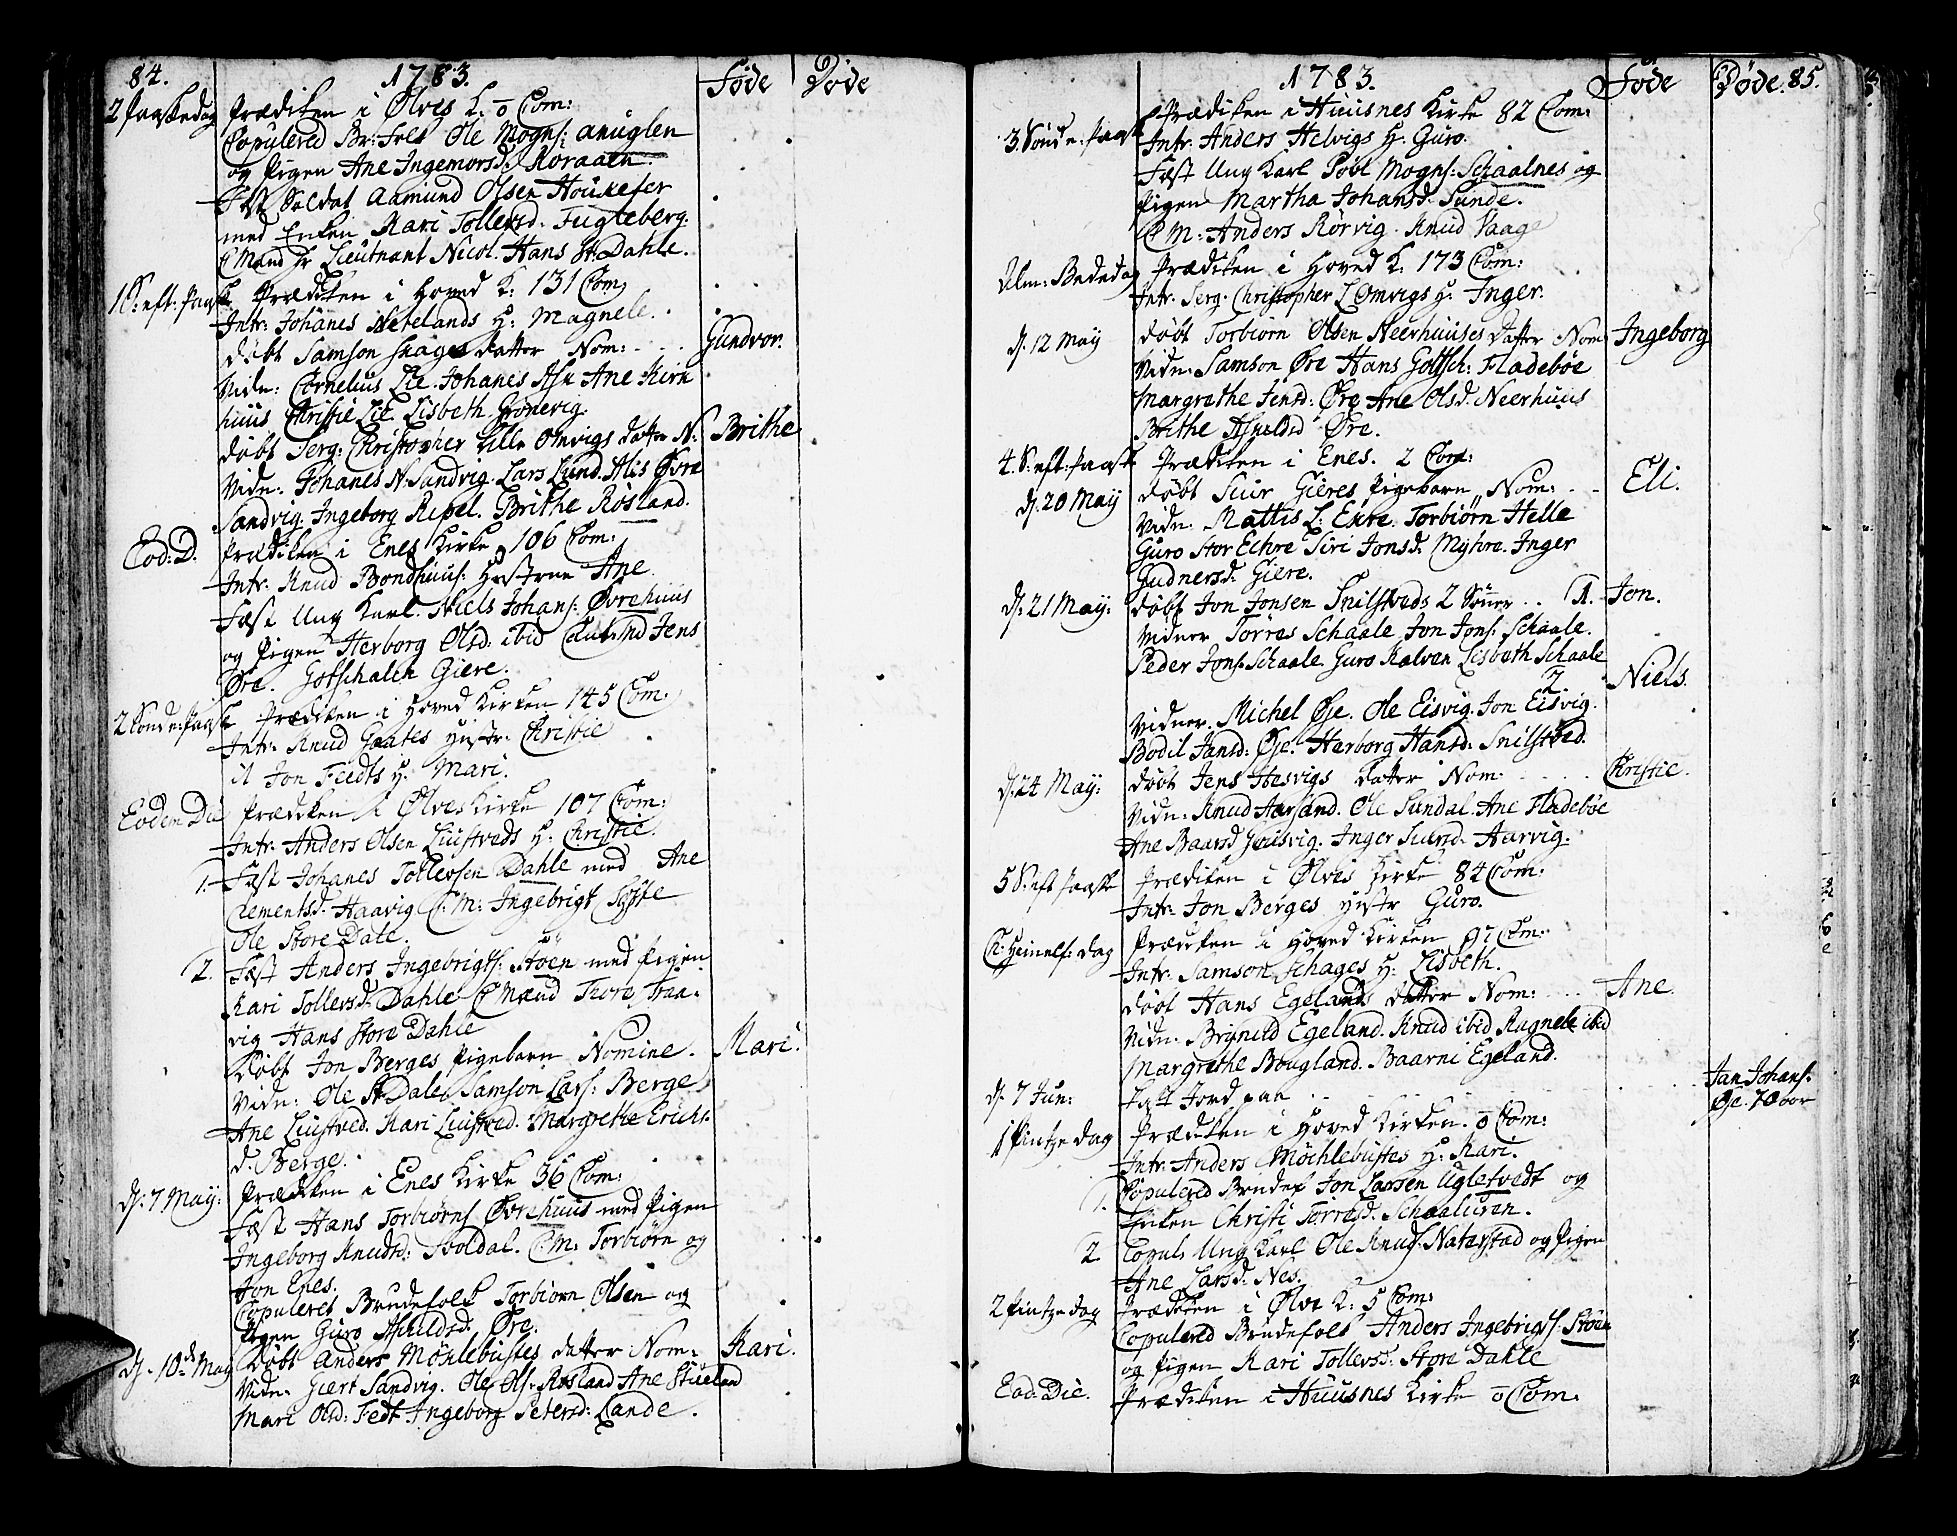 84. 1783. Føde Døde
2 Paaskedag Prædiken i Ølves K. 0 Com:
Copulered Br: Folk Ole Mogns: anuglen
og Pigen Ane Ingemorsd. Koraaen.
Fæst Soldat Aamund Olsen
med Enken Kari Tollevsd. Fugleberg.
C Mænd Hr Lieutnant Nicol. Hans St. Dahle.
1 S: eft. Paask Prædiken i Hoved K: 131 Com
Intr: Johanes Netelands H: Magnele.
døbt Samson Skages datter Nom: Gundvor.
Vidn: Cornelius Lie. Johanes Ane Kirk
huus Christie Lie. Lisbeth Gronevig.
døbt Serg: Christopher Lille Omvigs datter N: Brithe
Vidn: Johanes N. Sandvig. Lars Lund. Alis Øvre
Sandvig. Ingeborg Repel. Brithe Røsland.
Eod: D. Prædiken i Enes Kirke 106 Com:
Intr: Knud Bondhuus: Hustrue Ane.
Fæst Ung Karl. Niels Johans: Øvrehuus
og Pigen Herborg Olsd. ibid Jens
Øre. Gotschalch Giere.
2 Sønd n: Paask Prædiken i Hoved Kirken 145 Com:
Intr: Knud Gaates Hustr: Christie
it Jon Feedts H: Mari.
Eodem Die Prædiken i Ølves Kirke 107 Com:
Intr: Anders Olsen Liustveds H: Christie.
1. Fæst Johanes Tollevsen Dahle med Ane
Clementsd. Haavig C. M: Ingebrigt
Ole Store Dale.
2. Fæst Anders Ingebrigts: Støen med Pigen
Kari Tollevsd. Dahle C Mænd Tore
vig Hans Store Dahle
Døbt Jon Berges Pigebarn Nomine. Mari.
Vidn: Ole St Dale. Samson Lars: Berge
Ane Liustved. Kari Liustved. Margrethe Erichs:
d. Berge.
d. 7 May: Prædiken i Enes Kirke 36 Com:
Fæst Hans Torbiørns Øvrehuus med Pigen
Ingeborg Knudsd: C. M: Torbiørn og
Jon Enes.
Copuleret Brudefolk Torbiorn Olsen og
Pigen Guro Askildsd. Øre.
d. 10de May Døbt Anders Möhlebustes datter Nom: Kari.
Vidn: Giert Sandvig. Ole Ols: Røsland Ane
Mari Olsd: Fedt. Ingeborg Petersd: Lande.
1783. Føde Døde. 85.
3. Sønd n: Paask Prædiken i Huusnes Kirke 82 Com:
Intr: Anders Helvigs H: Guro.
Fæst Ung Karl Povl Mogns: Schaalnes og
Pigen Martha Johansd. Sunde.
C M: Anders Rörvig. Knud Vaage
Alm: Bededag Prædiken i Hoved K: 173 Com:
Intr: Serg: Christopher L Omvigs H: Inger.
d. 12 May døbt Torbiorn Olsen Neerhuuses datter Nom Ingeborg
Vidn: Samson Øre Hans Gottsch: Fladebøe
Margrethe Jensd: Øre Ane Olsd. Neerhuus
Brithe Askildsd Øre.
4. S: eft: Paask Prædiken i Enes. 2 Com:
d. 20 May døbt Siur Gieres Pigebarn Nom: Eli.
Vidn: Mattis L: Torbiørn Helle
Guro Stor Echre Siri Jonsd. Myhre. Inger
Gudnersd. Giere.
d. 21 May: døbt Jon Jonsen Snilstveds 2 Sønner 1. Jon.
Vidner Torres Schaale Jon Jons: Schaale.
Peder Jons: Schaale. Guro Kalven Lisbeth Schaale
2 Niels.
Vidner. Michel Øje. Ole Eisvig. Jon Eisvig.
Bodil Jansd: Øje. Herborg Hansd: Snilstved.
d: 24 May: døbt Jens Hesvigs datter Nom: Christie.
Vidn: Knud Ole Sundal. Ane Fladebøe
Ane Baarsd Inger Siursd. Aarvig.
5 S: eft Paaske Prædiken i Ølves Kirke 84 Com:
Intr: Jon Berges Hustr Guro.
C: Himmelf: dag Prædiken i Hoved Kirken 97 Com:
Intr: Samson Schages H: Lisbeth.
døbt Hans Egelands datter Nom: Ane.
Vidn: Brynild Egeland. Knud ibid Ragnele ibid
Margrethe Bougland. Baarni Egeland.
d. 7 Jun: Kast Jord paa Jan Johans: Øje. 70 aar
1 Pintze dag Prædiken i Hoved Kirken. 0 Com:
Intr: Anders Möchlebustes H: Kari.
1. Copulered Brudef Jon Larsen Ugletvedt og
Enken Christi Torresd. Schaaluren.
2 Copul. Ung Karl Ole Knuds: Naterstad og Pigen
Ane Larsd. Nes.
2 Pintze dag Prædiken i Ølve K: 5 Com:
Copulered Brudefolk Anders Ingebrigts: Støen
og Pigen Kari Tollevsd: Store Dahle
Eod: Die. Prædiken i Huusnes Kirke 0 Com: